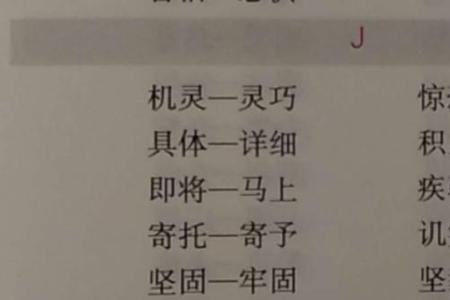 J
机灵—灵巧 惊
具体—详细 积
即将—马上 疾
寄托—寄予 讥
坚固—牢固 坚